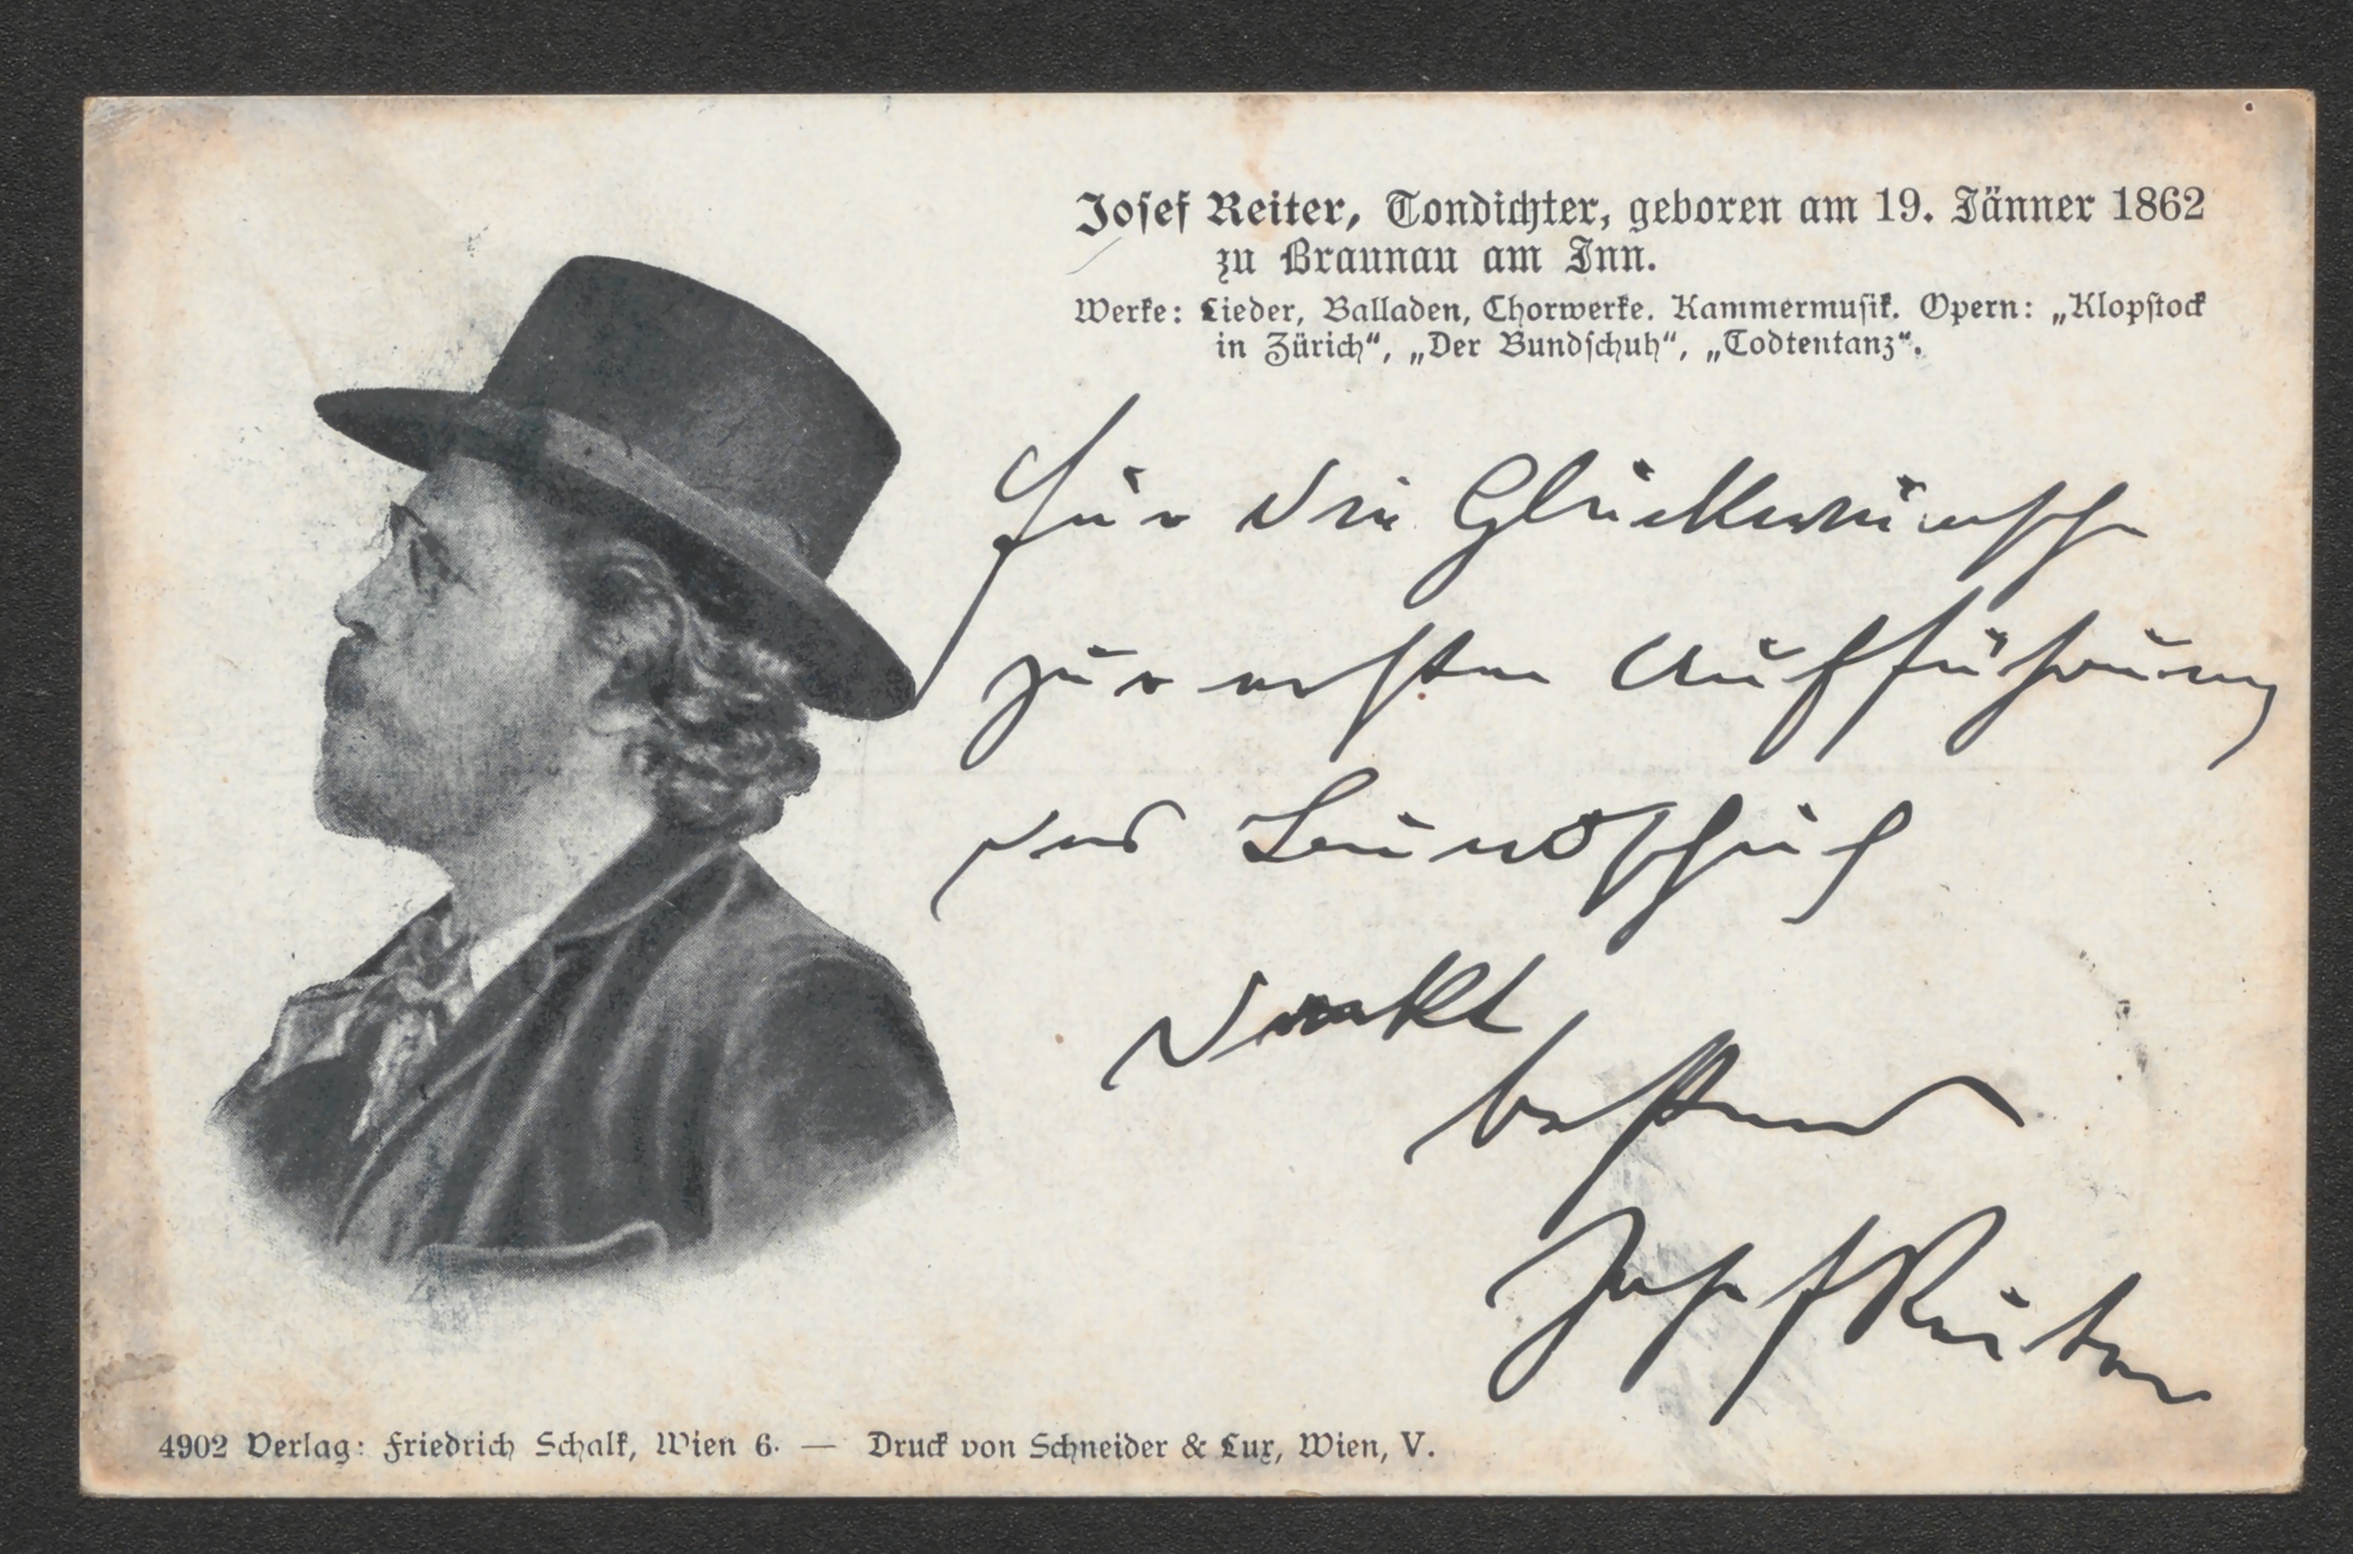 Josef Reiter, Tondichter, geboren am 19. Jänner 1862
zu Braunau am Inn.
Werke: Lieder, Balladen, Chorwerke. Kammermusik. Opern: „Klopstock
in Zürich“, „Der Bundschuh“, „Todtentanz“.
Für die Glückwünsche
zur ersten Aufführung
des Bundschuh
dankt
bestens
Josef Reiter
4902 Verlag: Friedrich Schalk, Wien 6. — Druck von Schneider & Lux, Wien, V.